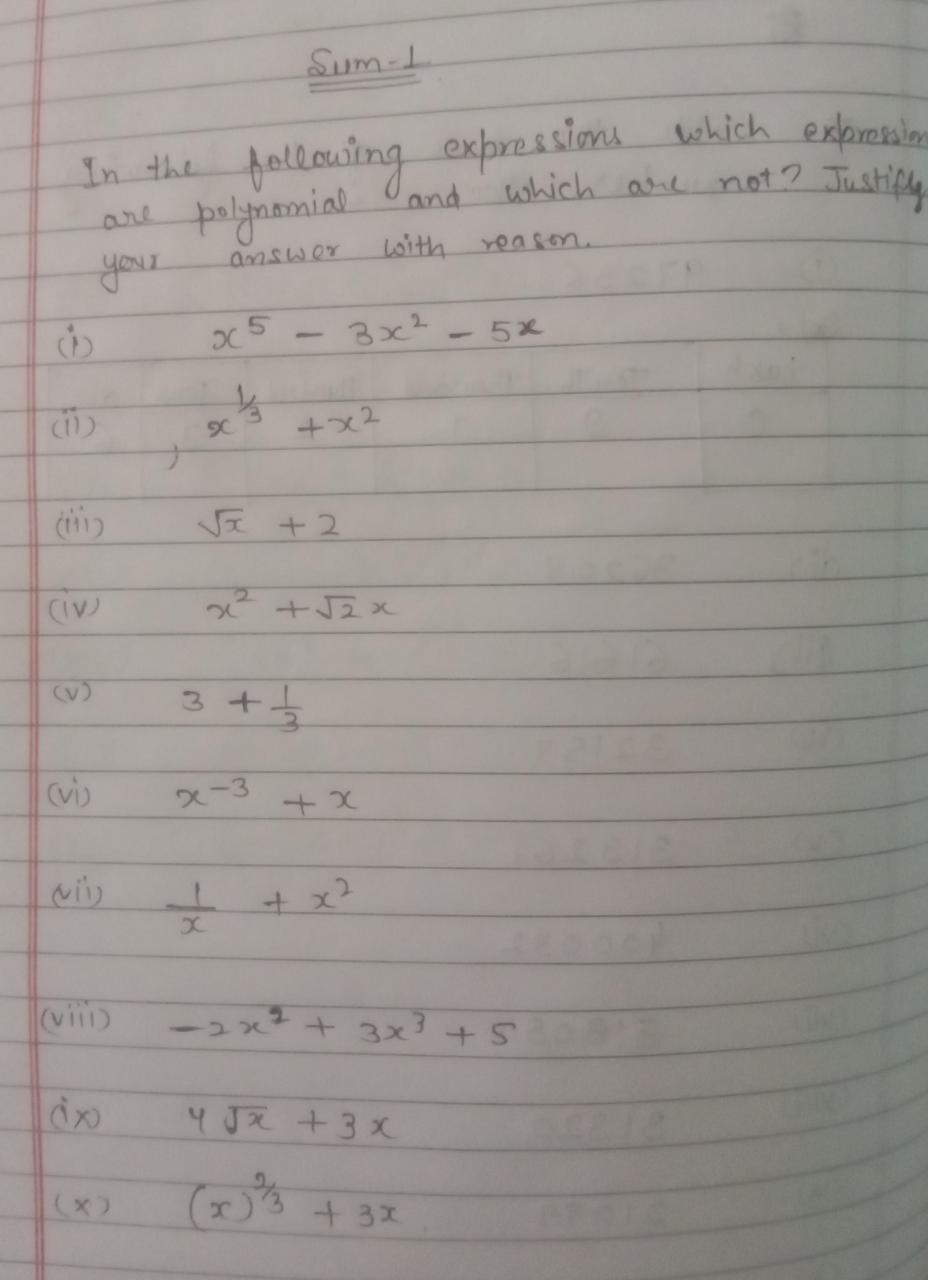 Sum-1
In the following expressions which expression
are polynomial and which are not? Justify
your answer with reason.
(i) x⁵ - 3x² - 5x
(ii) , x^1/3 + x²
(iii) √x + 2
(iv) x² + √2 x
(v) 3 + 1/3
(vi) x⁻³ + x
(vii) 1/x + x²
(viii) -2x² + 3x³ + 5
(ix) 4√x + 3x
(x) (x)^2/3 + 3x